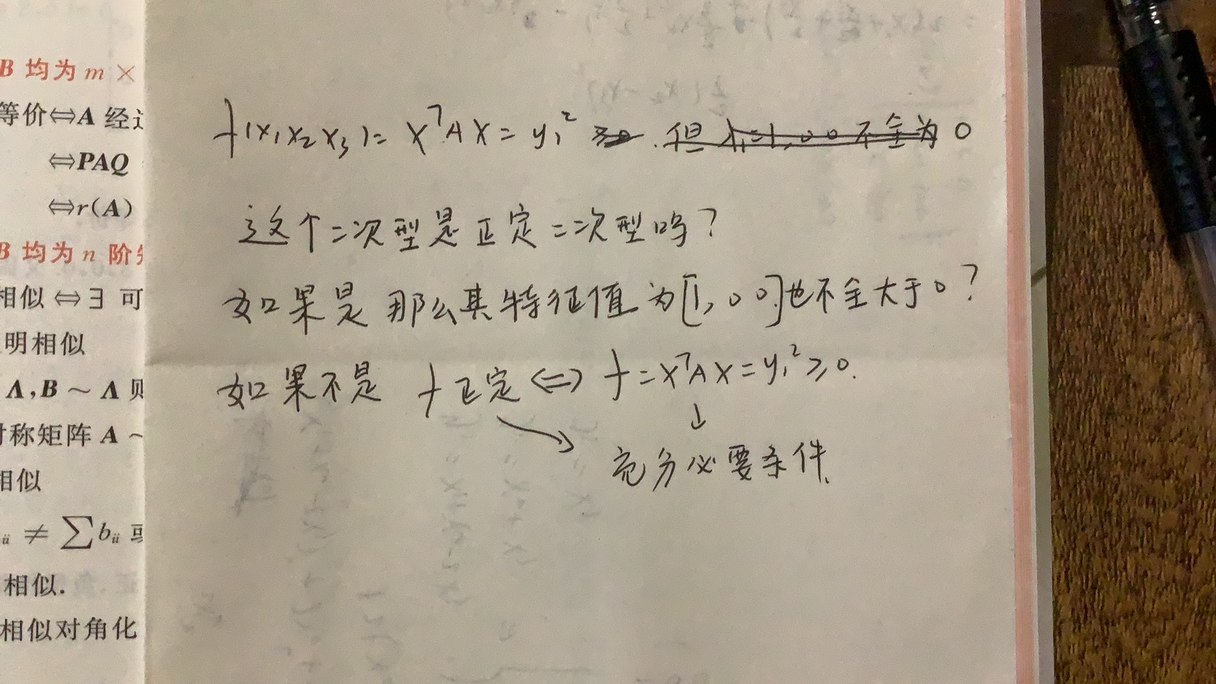 B 均为 m ×
等价⇔A 经过
⇔PAQ
⇔r(A)
B 均为 n 阶
相似⇔∃ 可
明相似
Λ,B ~ Λ 则
对称矩阵 A ~
相似
ᵢᵢ ≠ ∑bᵢᵢ 或
相似.
相似对角化
f(x₁x₂x₃)= xᵀAx = y₁² ≥0 . 但 λ₁=1,00 不全为 0
这个二次型是正定二次型吗?
如果是 那么其特征值为[1,00]也不全大于0?
如果不是 f正定⇔ f=xᵀAx=y₁²≥0.
充分必要条件.